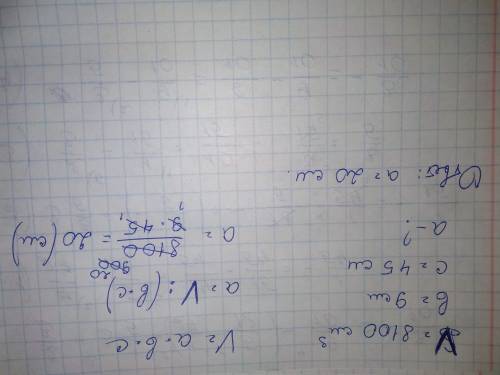 V = 8100 см³
b = 9 см
c = 45 см
a - ?
V = a · b · c
a = V : (b · c)
a = 8100 / 9 · 45 = 20 (см)
900
20
1
1
Ответ: a = 20 см.